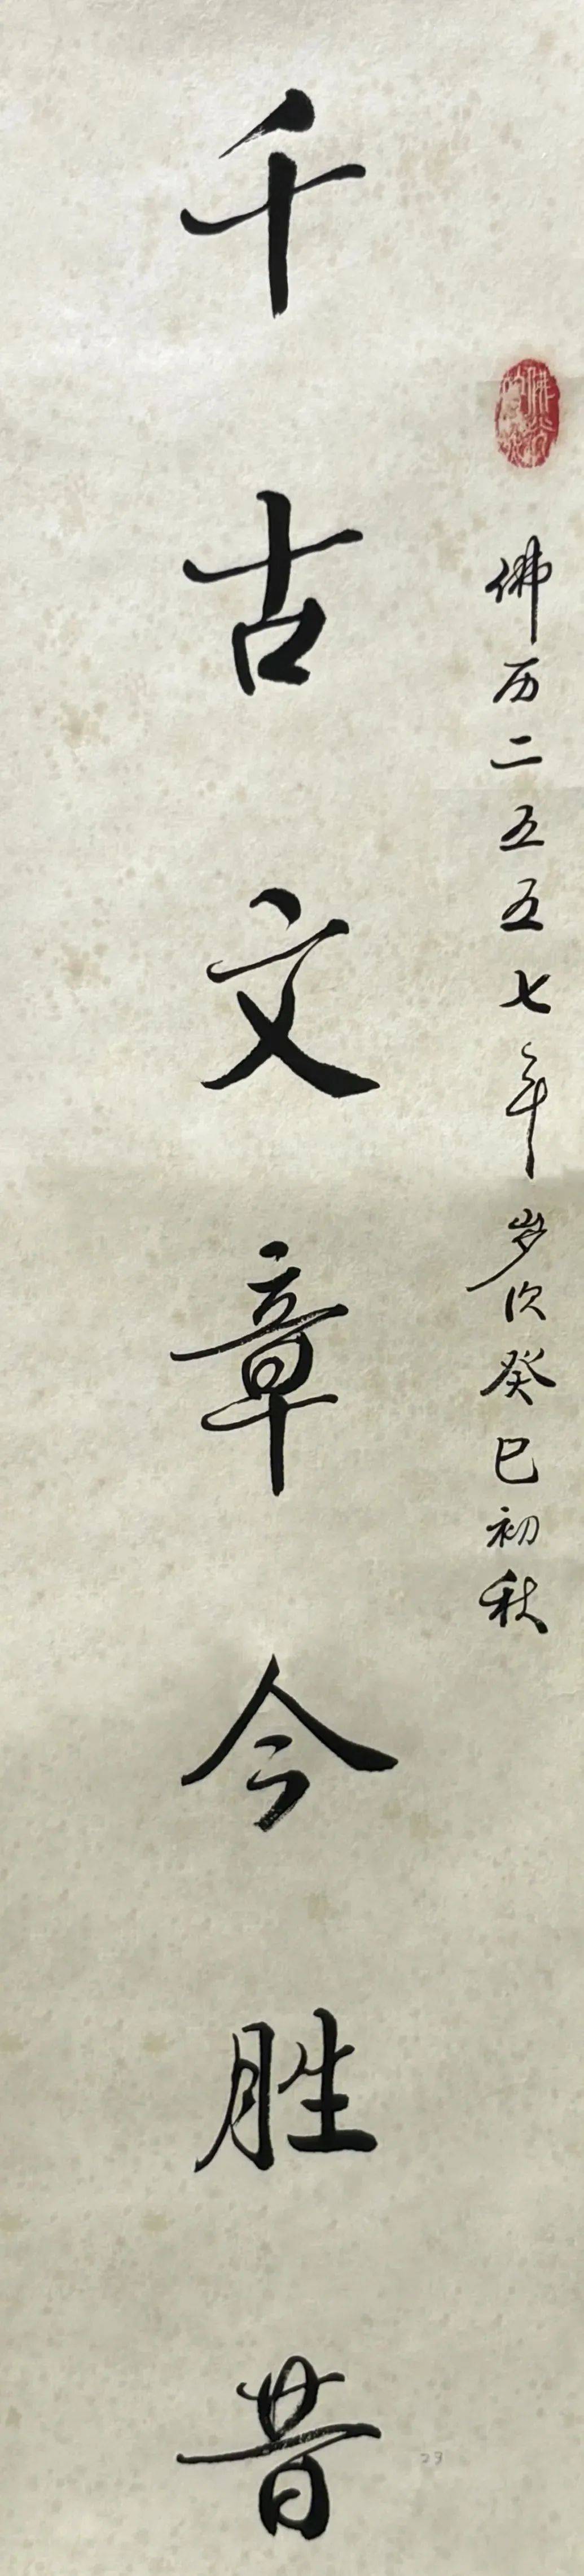 佛历二五五七年岁次癸巳初秋
千古文章今胜昔
23